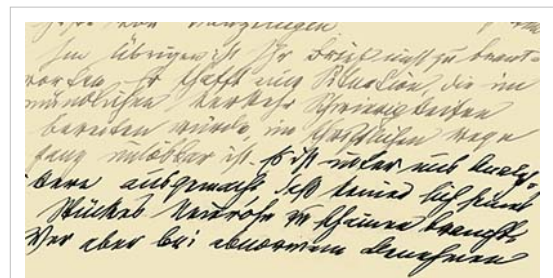 Im übrigen ist Ihr Brief nicht zu beant-
worten. Er schafft eine Situation, die im
mündlichen Verkehr Schwierigkeiten
bereiten würde, im schriftlichen Wege
ganz unlösbar ist. Es ist unter uns Analy-
tikern ausgemacht daß keiner sich seines
Stückes Neurose zu schämen braucht.
Wer aber bei abnormem Benehmen